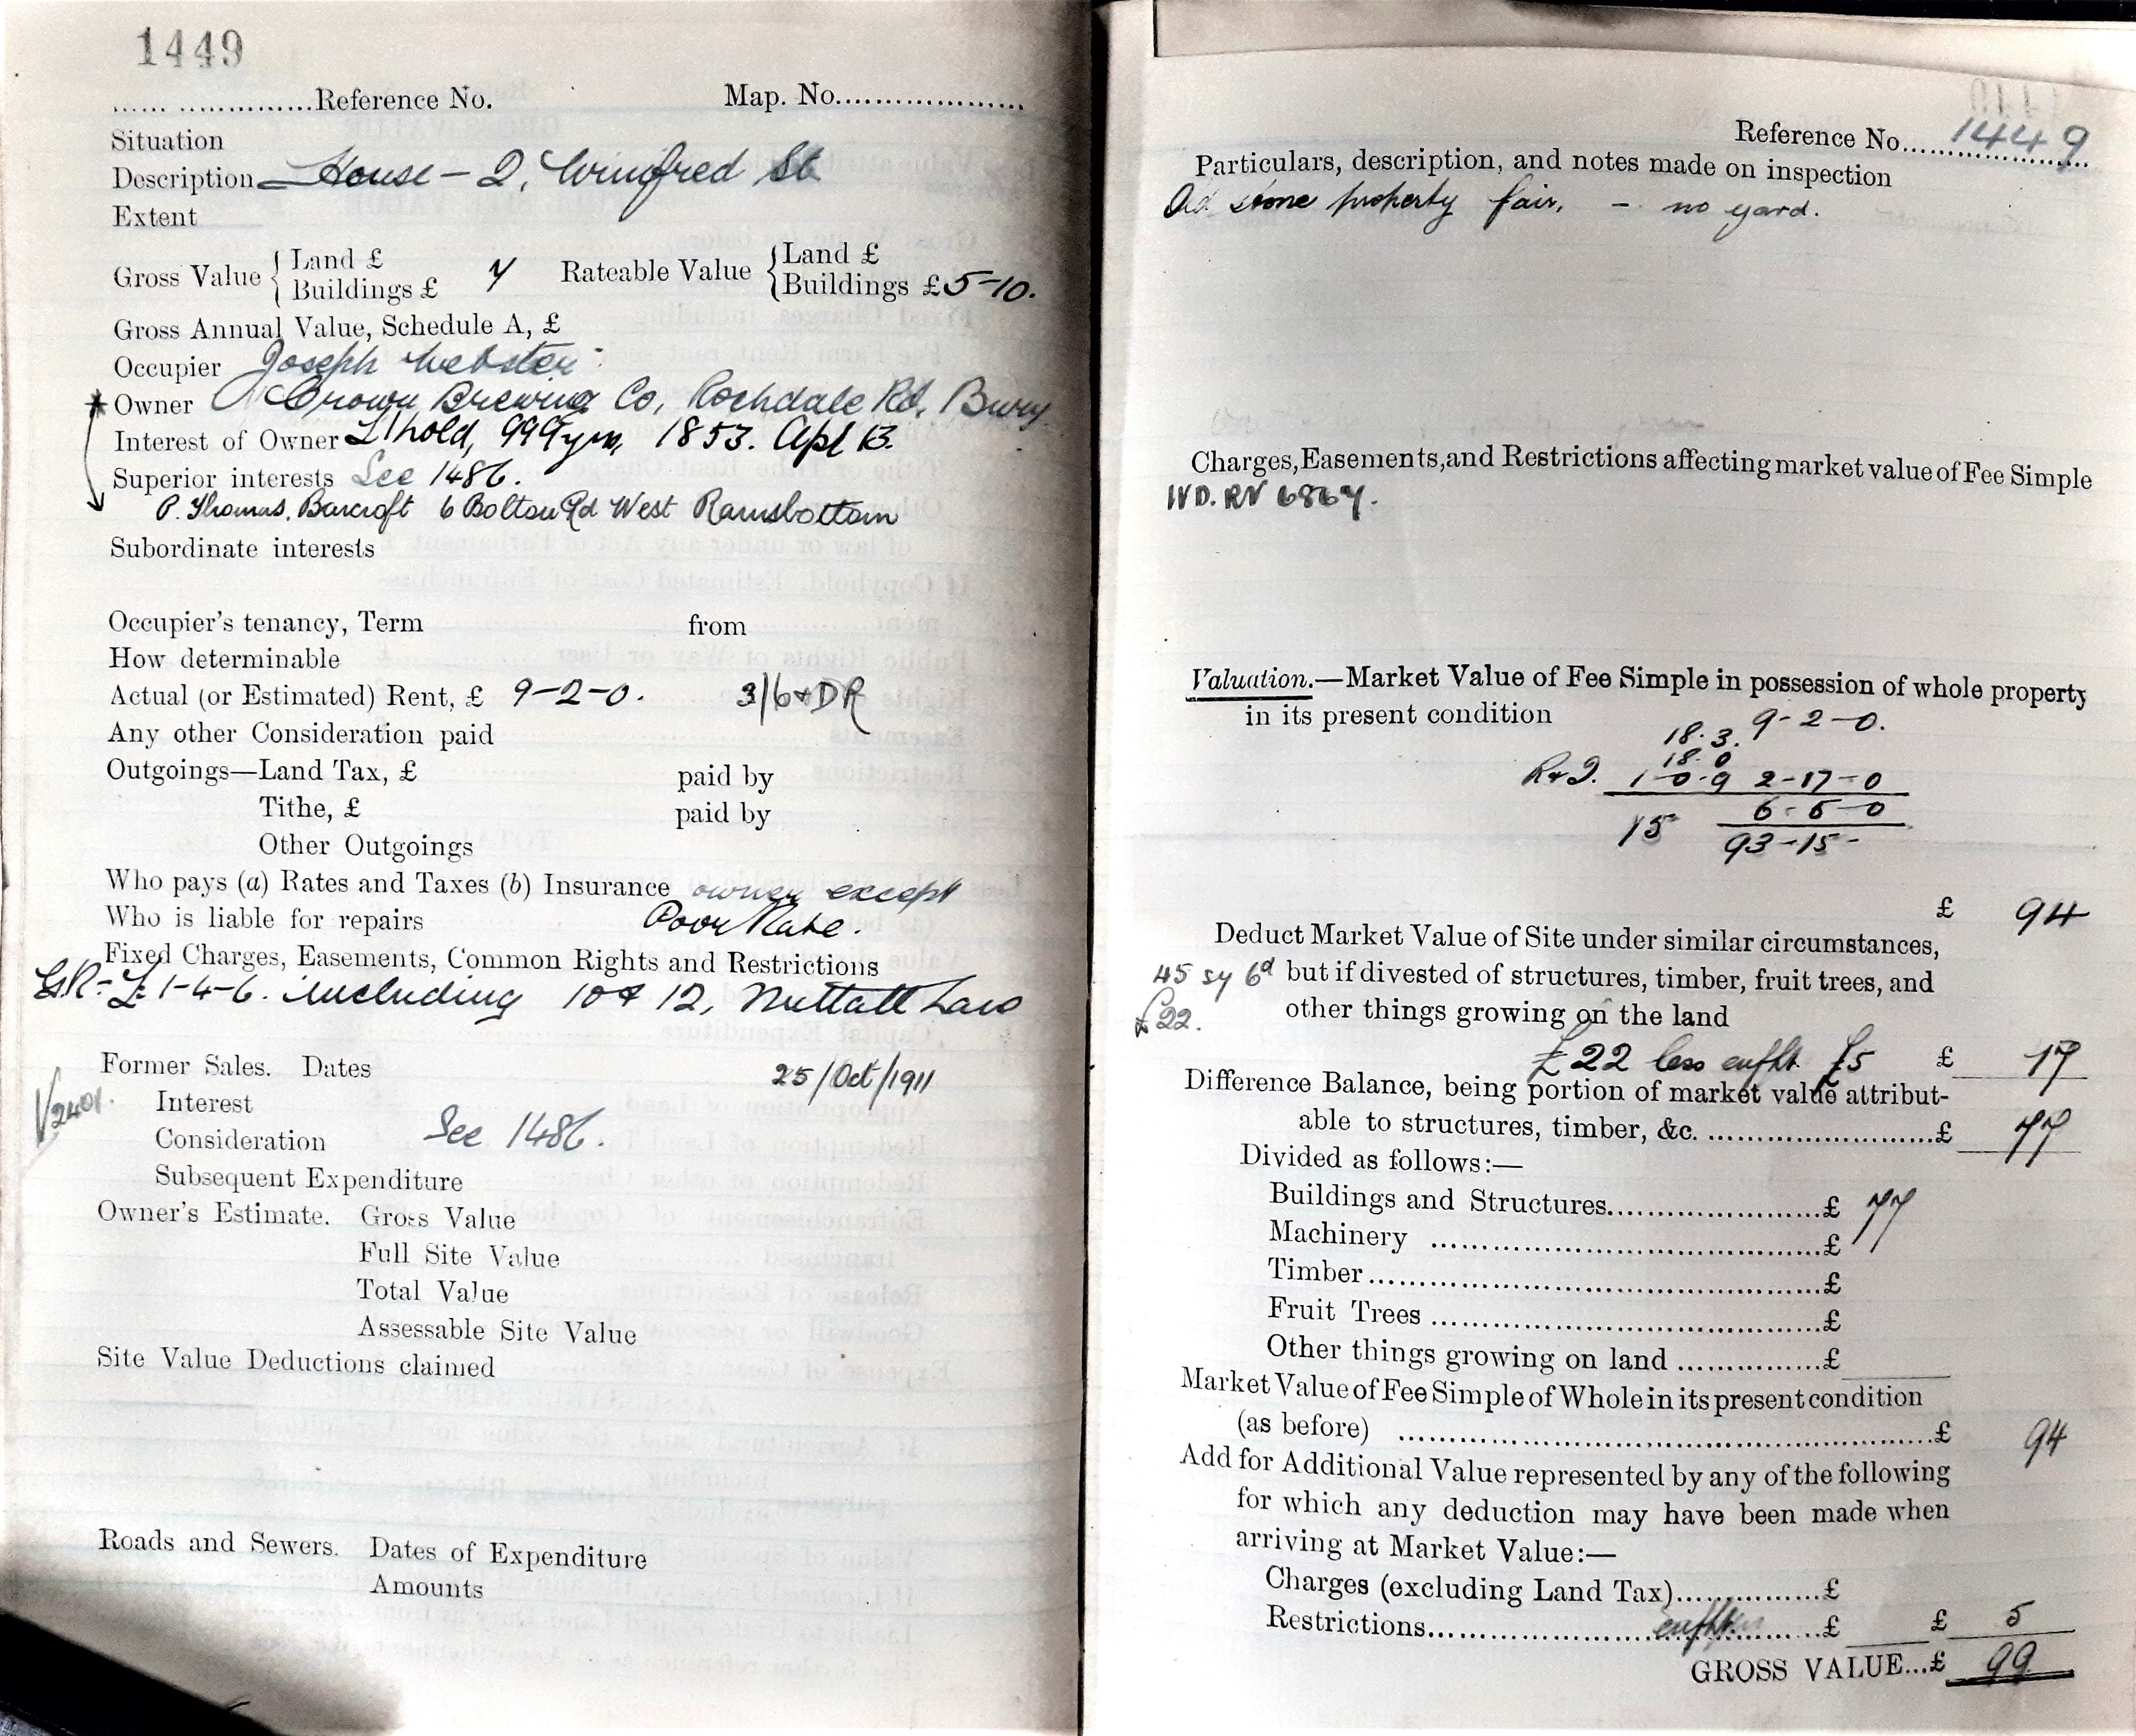 1449
...... ..............Reference No. Map. No....................
Situation
Description House - 2, Winifred St
Extent
Gross Value { Land £ Rateable Value { Land £
Buildings £ 7 Buildings £ 5-10.
Gross Annual Value, Schedule A, £
Occupier Joseph Webster
Owner Crown Brewing Co, Rochdale Rd, Bury
Interest of Owner L'hold, 999 yrs, 1853. Apl 13.
Superior interests See 1486.
P. Thomas. Barcroft 6 Bolton Rd West Ramsbottom
Subordinate interests
Occupier's tenancy, Term from
How determinable
Actual (or Estimated) Rent, £ 9-2-0. 3/6 + DR
Any other Consideration paid
Outgoings—Land Tax, £ paid by
Tithe, £ paid by
Other Outgoings
Who pays (a) Rates and Taxes (b) Insurance owner except
Who is liable for repairs Poor Rate.
Fixed Charges, Easements, Common Rights and Restrictions
G.R. - £1-4-6. including 10 & 12, Nuttall Lane
Former Sales. Dates 25/Oct/1911
V2401.
Interest
Consideration See 1486.
Subsequent Expenditure
Owner's Estimate. Gross Value
Full Site Value
Total Value
Assessable Site Value
Site Value Deductions claimed
Roads and Sewers. Dates of Expenditure
Amounts
Reference No. 1449
Particulars, description, and notes made on inspection
Old stone property fair, - no yard.
Charges, Easements, and Restrictions affecting market value of Fee Simple
IVD. RV 6867.
Valuation.—Market Value of Fee Simple in possession of whole property
in its present condition
9-2-0.
18. 3.
18. 0
R+I. 1-0-9 2-17-0
6-5-0
15 93-15-
£ 94
Deduct Market Value of Site under similar circumstances,
45 sy 6d but if divested of structures, timber, fruit trees, and
£22. other things growing on the land
£22 less enfht £5 £ 17
Difference Balance, being portion of market value attribut-
able to structures, timber, &c. ..........................£ 77
Divided as follows:—
Buildings and Structures........................£ 77
Machinery ..........................................£
Timber.................................................£
Fruit Trees ..........................................£
Other things growing on land ................£
Market Value of Fee Simple of Whole in its present condition
(as before) ..........................................................£ 94
Add for Additional Value represented by any of the following
for which any deduction may have been made when
arriving at Market Value:—
Charges (excluding Land Tax)................£
Restrictions.......... enfht ..........£ £ 5
GROSS VALUE...£ 99